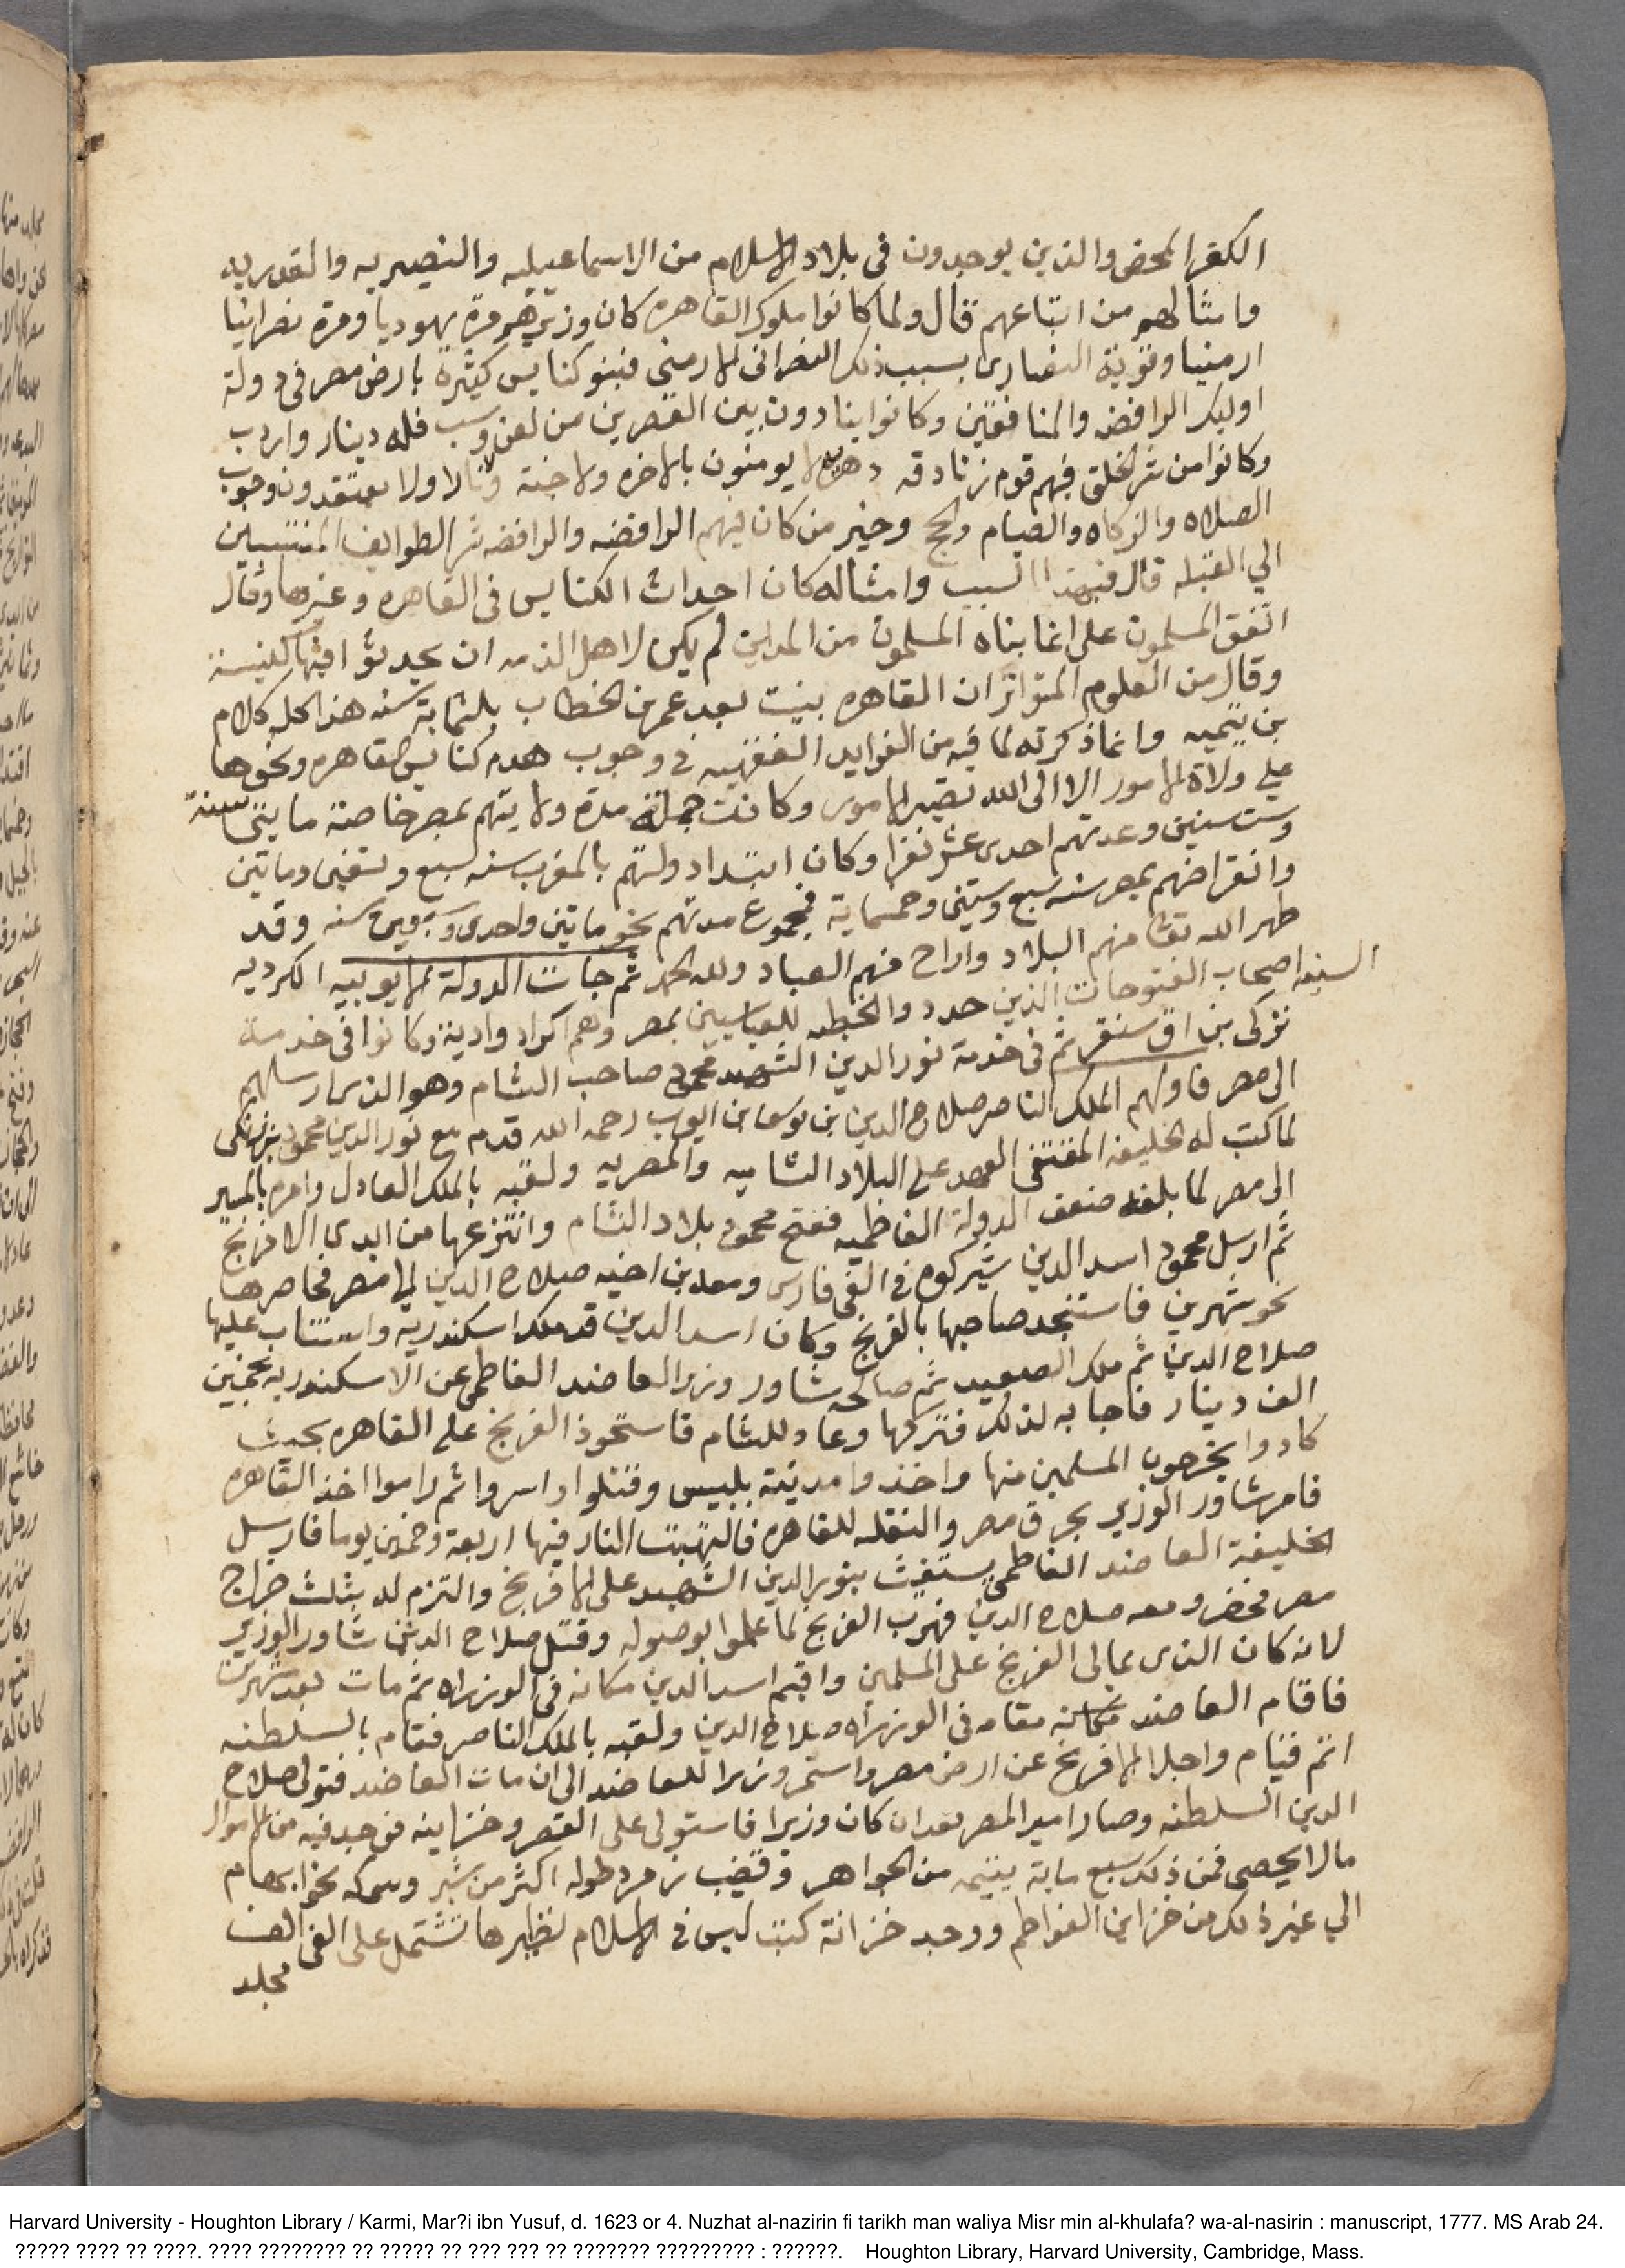 الكفر المحض والذين يوجدون فى بلاد الاسلام من الاسماعيليه والنصيريه والقدريه
وامثالهم من اتباعهم قال ولما كانوا ملوك القاهره كان وزيرهم مرة يهوديا ومرة نصرانيا
ارمنيا وقوية النصارى بسبب ذلك النصرانى الارمنى فبنو كنايس كثيرة بارض مصر فى دولة
اوليك الرافضه والمنافقين وكانوا ينادون بين القصرين من لعن وسب فله دينار واردب
وكانوا من شر الخلق فيهم قوم زنادقه دهريه لا يومنون بالاخره ولا جنة ولا نار ولا يعتقدون وجوب
الصلاه والزكاه والصيام والحج وخير من كان فيهم الرافضه والرافضه شر الطوايف المنتسبين
الي القبله قال فبهذا السبب وامثاله كان احداث الكنايس فى القاهره وغيرها وقال
اتفق المسلمون على انما بناه المسلمون من المداين لم يكن لاهل الذمه ان يحدثوا فيها كنيسة
وقال من العلوم المتواتر ان القاهره بنيت بعد عمر بن الخطاب بثلثماية سنه هذا كله كلام
بن تيميه وانما ذكرته لما فيه من الفوايد الفقهيه فى وجوب هدم كنايس القاهره ونحوها
علي ولاة الامور الا الى الله تصير الامور وكانت جملة مدة ولايتهم بمصر خاصة مايتى سنة
وست سنين وعدتهم احدى عشر نفرا وكان ابتدا دولتهم بالمغرب سنه سبع وتسعين وماتين
وانقراضهم بمصر سنه سبع وستين وخمسماية فمجموع مدتهم نحو ماتين واحدى وسبعين سنه وقد
طهر الله تعا منهم البلاد واراح منهم العباد ولله الحمد ثم جات الدولة الايوبيه الكرديه
السنيه اصحاب الفتوحات الذين جددوا الخطبه للعباسيين بمصر وهم اكراد وادية وكانوا فى خدمة
نزكى بن اق سنقر ثم فى خدمة نور الدين الشهيد محمود صاحب الشام وهو الذى ارسلهم
الى مصر فاولهم الملك الناصر صلاح الدين بن يوسف ابن ايوب رحمه الله قدم مع نور الدين محمود بن زنكى
لما كتب له الخليفه المقتفى العهد على البلاد الشاميه والمصريه ولقبه بالملك العادل وامره بالمسير
الى مصر لما بلغه ضعف الدولة الفاطميه ففتح محمود بلاد الشام وانتزعها من ايدى الافرنج
ثم ارسل محمود اسد الدين شيركوه فى الفى فارس ومعه بن اخيه صلاح الدين الى مصر فحاصرها
نحو شهرين فاستنجد صاحبها بالفرنج وكان اسد الدين قد ملك اسكندريه واستناب عليها
صلاح الدين ثم ملك الصعيد ثم صالحه شاور وزير العاضد الفاطمى عن الاسكندريه بخمسين
الف دينار فاجابه لذلك فتركها وعاد للشام فاستحوذ الفرنج على القاهره بحيث
كادوا يخرجون المسلمين منها واخذوا مدينة بلبيس وقتلوا واسروا ثم راموا اخذ القاهره
فامر شاور الوزير بحرق مصر والنقله للقاهره فالتهبت النار فيها اربعة وخمسين يوما فارسل
الخليفة العاضد الفاطمى يستغيث بنور الدين الشهيد على الافرنج والتزم له بثلث خراج
مصر فحضر ومعه صلاح الدين فهرب الفرنج لما علموا بوصوله وقتل صلاح الدين شاور الوزير
لانه كان الذى يمالى الفرنج على المسلمين واقيم اسد الدين مكانه فى الوزراه ثم مات بعد شهرين
فاقام العاضد مكانه مقامه فى الوزراه صلاح الدين ولقبه بالملك الناصر فقام بالسلطنه
اتم قيام واجلا الافرنج عن ارض مصر واستمر وزيرا للعاضد الى ان مات العاضد فتولى صلاح
الدين السلطنه وصار امير المصر بعد ان كان وزيرا فاستولى على القصر وخزاينه فوجد فيه من الاموال
مالا يحصى فمن ذلك سبع ماية يتيمه من الجواهر وقضيب زمرد طوله اكثر من شبر وسمكه نحو ابهام
الي غير ذلك من خزاين الفواطم ووجد خزانة كتب ليس فى الاسلام نظيرها تشتمل على الفى الف
مجلد
Harvard University - Houghton Library / Karmi, Mar?i ibn Yusuf, d. 1623 or 4. Nuzhat al-nazirin fi tarikh man waliya Misr min al-khulafa? wa-al-nasirin : manuscript, 1777. MS Arab 24.
????? ???? ?? ????. ???? ???????? ?? ????? ?? ??? ??? ?? ??????? ????????? : ??????. Houghton Library, Harvard University, Cambridge, Mass.